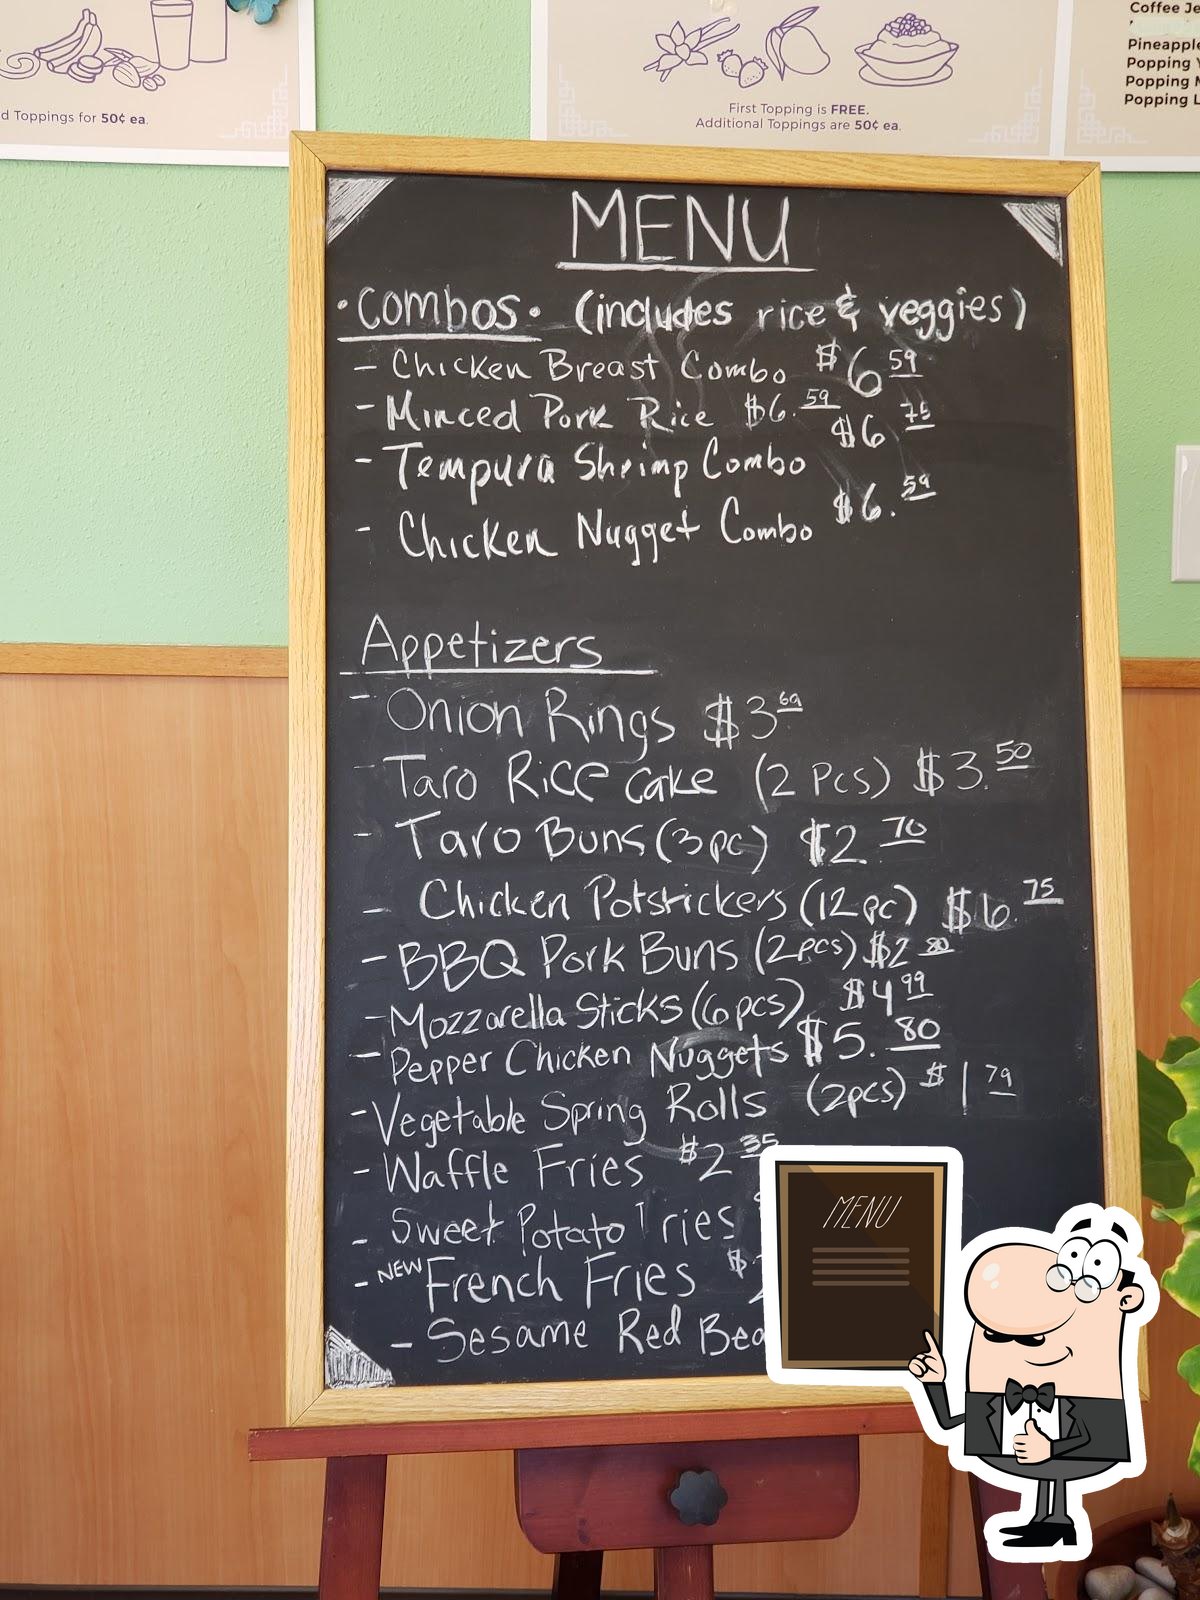 d Toppings for 50¢ ea.
First Topping is FREE.
Additional Toppings are 50¢ ea.
Coffee Je
Pineapple
Popping Y
Popping M
Popping L
MENU
• Combos • (includes rice & veggies)
- Chicken Breast Combo $6 59
- Minced Pork Rice $6.59
- Tempura Shrimp Combo $6 75
- Chicken Nugget Combo $6.59
Appetizers
- Onion Rings $3 69
- Taro Rice cake (2 Pcs) $3.50
- Taro Buns (3pc) $2.70
- Chicken Potstickers (12pc) $6.75
- BBQ Pork Buns (2pcs) $2 80
- Mozzarella Sticks (6pcs) $4 99
- Pepper Chicken Nuggets $5.80
- Vegetable Spring Rolls (2pcs) $1 79
- Waffle Fries $2 35
- Sweet Potato Fries
- NEW French Fries $
- Sesame Red Bea
MENU